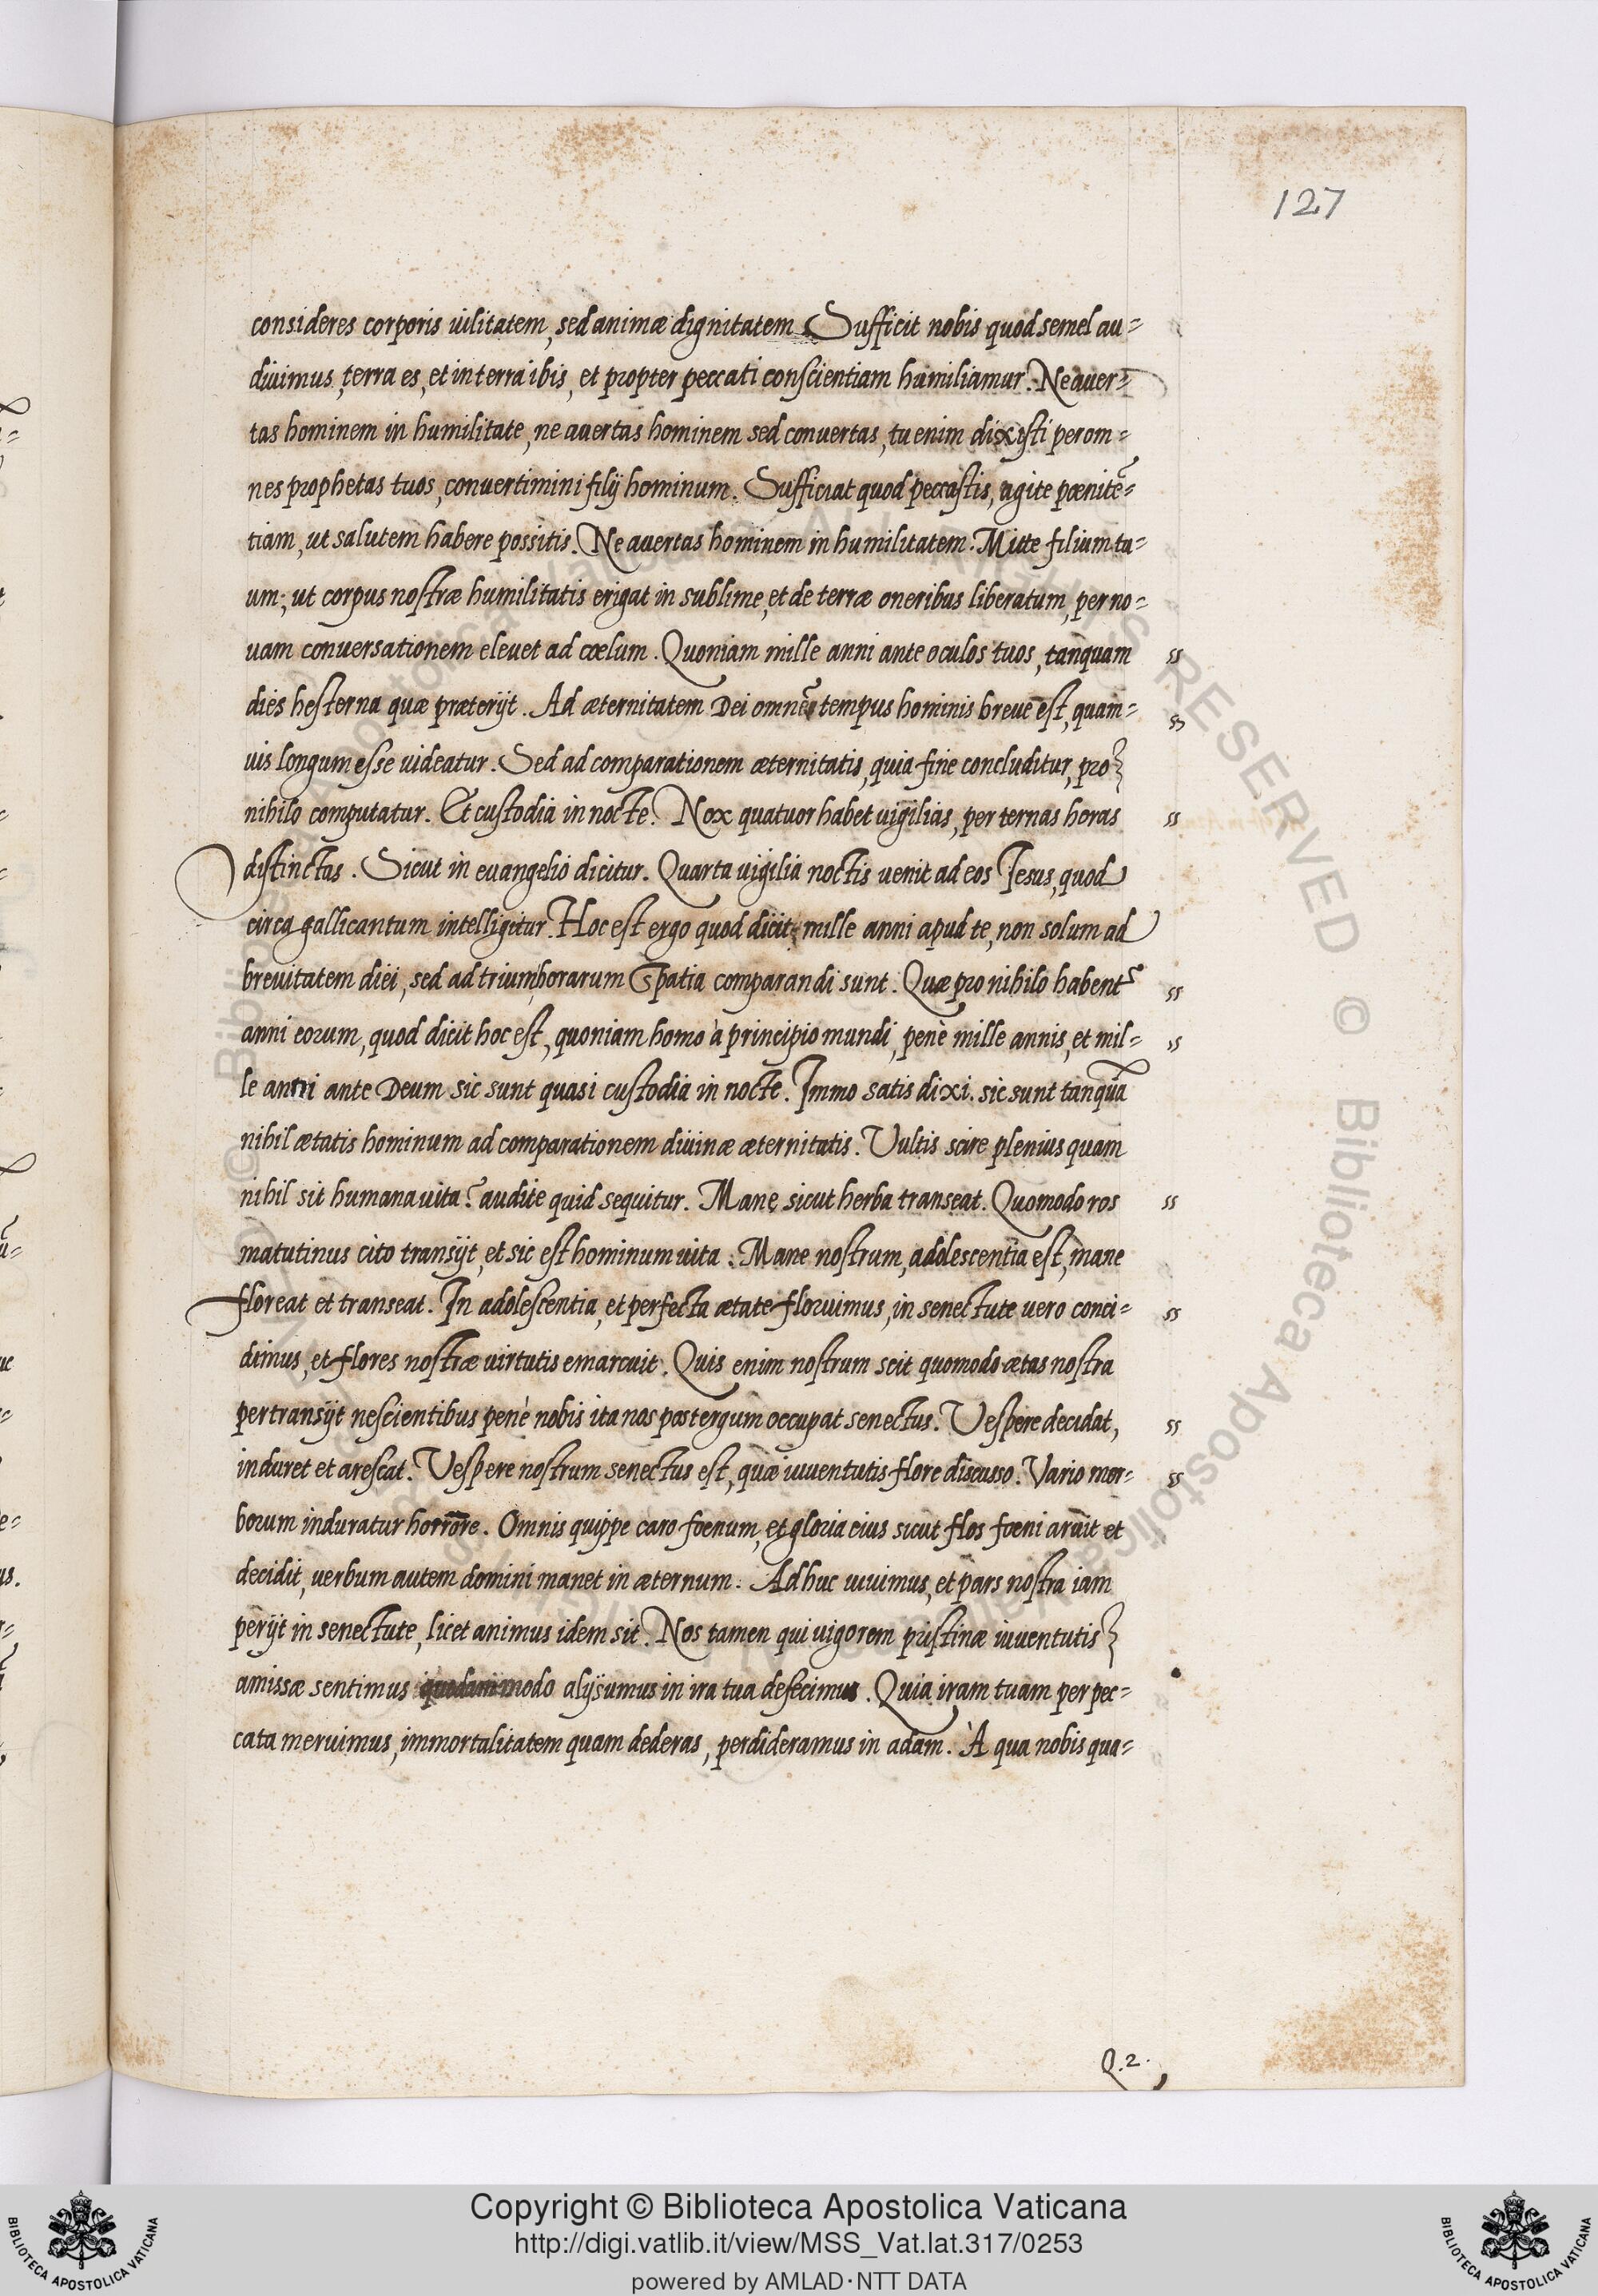 127
consideres corporis uilitatem, sed animæ dignitatem. Sufficit nobis quod semel au=
diuimus, terra es, et in terra ibis, et propter peccati conscientiam humiliamur. Ne auer=
tas hominem in humilitate, ne auertas hominem sed conuertas, tu enim dixisti per om=
nes prophetas tuos, conuertimini filij hominum. Sufficiat quod peccastis, agite pœnitē=
tiam, ut salutem habere possitis. Ne auertas hominem in humilitatem. Mitte filium tu=
um; ut corpus nostræ humilitatis erigat in sublime, et de terræ oneribus liberatum, per no=
uam conuersationem eleuet ad cœlum. Quoniam mille anni ante oculos tuos, tanquam
dies hesterna quæ præterijt. Ad æternitatem Dei omne tempus hominis breue est, quam=
uis longum esse uideatur. Sed ad comparationem æternitatis, quia fine concluditur, pro
nihilo computatur. Et custodia in nocte. Nox quatuor habet uigilias, per ternas horas
distinctas. Sicut in euangelio dicitur. Quarta uigilia noctis uenit ad eos Iesus, quod
circa gallicantum intelligitur. Hoc est ergo quod dicit, mille anni apud te, non solum ad
breuitatem diei, sed ad trium horarum spatia comparandi sunt. Quæ pro nihilo habent᷑
anni eorum, quod dicit hoc est, quoniam homo à principio mundi, penè mille annis, et mil=
le anni ante Deum sic sunt quasi custodia in nocte. Immo satis dixi. sic sunt tanquā
nihil ætatis hominum ad comparationem diuinæ æternitatis. Vultis scire plenius quam
nihil sit humana uita? audite quid sequitur. Mane, sicut herba transeat. Quomodo ros
matutinus cito transijt, et sic est hominum uita. Mane nostrum, adolescentia est, mane
floreat et transeat. In adolescentia, et perfecta ætate floruimus, in senectute uero conci=
dimus, et flores nostræ uirtutis emarcuit. Quis enim nostrum scit quomodo ætas nostra
pertransijt nescientibus penè nobis ita nos postergum occupat senectus. Vespere decidat,
induret et arescat. Vespere nostrum senectus est, quæ iuuentutis flore discusso. Vario mor=
borum induratur horrore. Omnis quippe caro fœnum, et gloria eius sicut flos fœni aruit et
decidit, uerbum autem domini manet in æternum. Adhuc uiuimus, et pars nostra iam
perijt in senectute, licet animus idem sit. Nos tamen qui uigorem pristinæ iuuentutis
amissæ sentimus quodammodo alij sumus in ira tua defecimus. Quia iram tuam per pec=
cata meruimus, immortalitatem quam dederas, perdideramus in adam. À qua nobis qua=
Q.2.
Copyright © Biblioteca Apostolica Vaticana
http://digi.vatlib.it/view/MSS_Vat.lat.317/0253
powered by AMLAD·NTT DATA
BIBLIOTECA APOSTOLICA VATICANA
BIBLIOTECA APOSTOLICA VATICANA